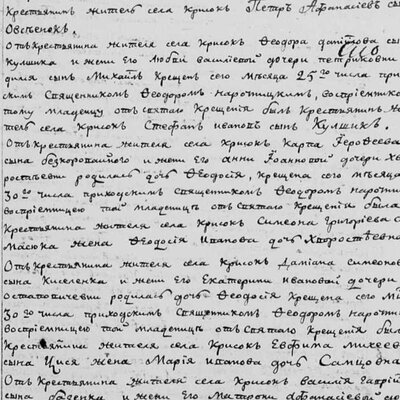 крестьянинъ житель села Крисокъ Петръ Афанасіевъ сы
Овсѣенокъ.
Отъ крестьянина жителя села Крисокъ Феодора
Кулшика и жены его Любви василіевой дочери
дился сынъ Михаилъ крещенъ сего мѣсяца 25го числа при
скимъ Священникомъ Феодоромъ Нарожницкимъ, воспріемнико
тому младенцу отъ святаго Крещенія былъ крестьянинъ ж
тель села Крисокъ Стефанъ ивановъ сынъ Кулшикъ.
Отъ крестьянина жителя села Крисокъ Карпа Ерофеева
сына безкоровайного и жены его анны Іоанновой дочери х
родилась дочь Феодосія, крещена сего мѣсяца
30го числа приходскимъ священникомъ Феодоромъ нарожн
воспріемницею той младеницѣ отъ святаго крещенія была
крестьянина жителя села Крисокъ Симеона Григоріева с
жена Феодосія Иванова дочь
Отъ крестьянина жителя села Крисокъ Даміана Симеонов
сына Киселенка и жены его Екатерины ивановой дочери
родилась дочь Феодосія крещена сего мѣ
30го числа приходскимъ священникомъ Феодоромъ нарожн
воспріемницею той младеницѣ отъ святаго крещенія была
крестьянина жителя села Крисокъ Евфима михеев
сына жена Марія иванова дочь
Отъ крестьянина жителя села Крисокъ василія Гаврій
сына и жены его Матроны афанасіевой до